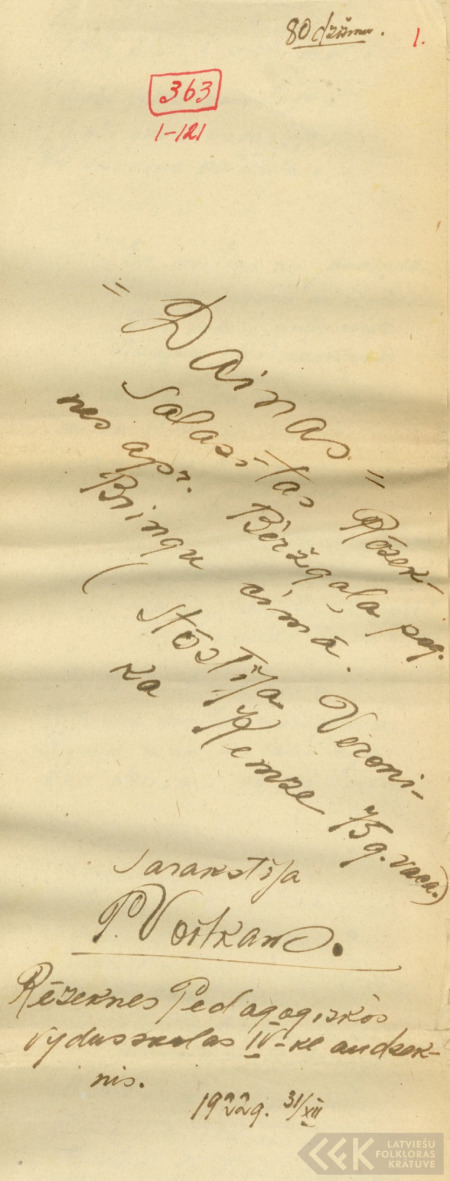 80 dzīsmu.
1.
363
1-121
"Dainas"
Salasītas Rēzek-
nes apr. Bēržgaļa pog.
Bringu cīmā.
(Stōstīja Veroni-
ka Remze 75 g. vaca.)
Sarakstīja
P. Voitkans.
Rēzeknes Pedagogiskōs
vydusskolas IV-kl audzek-
nis.
1922g. 31/XII
LATVIEŠU
FOLKLORAS
KRĀTUVE